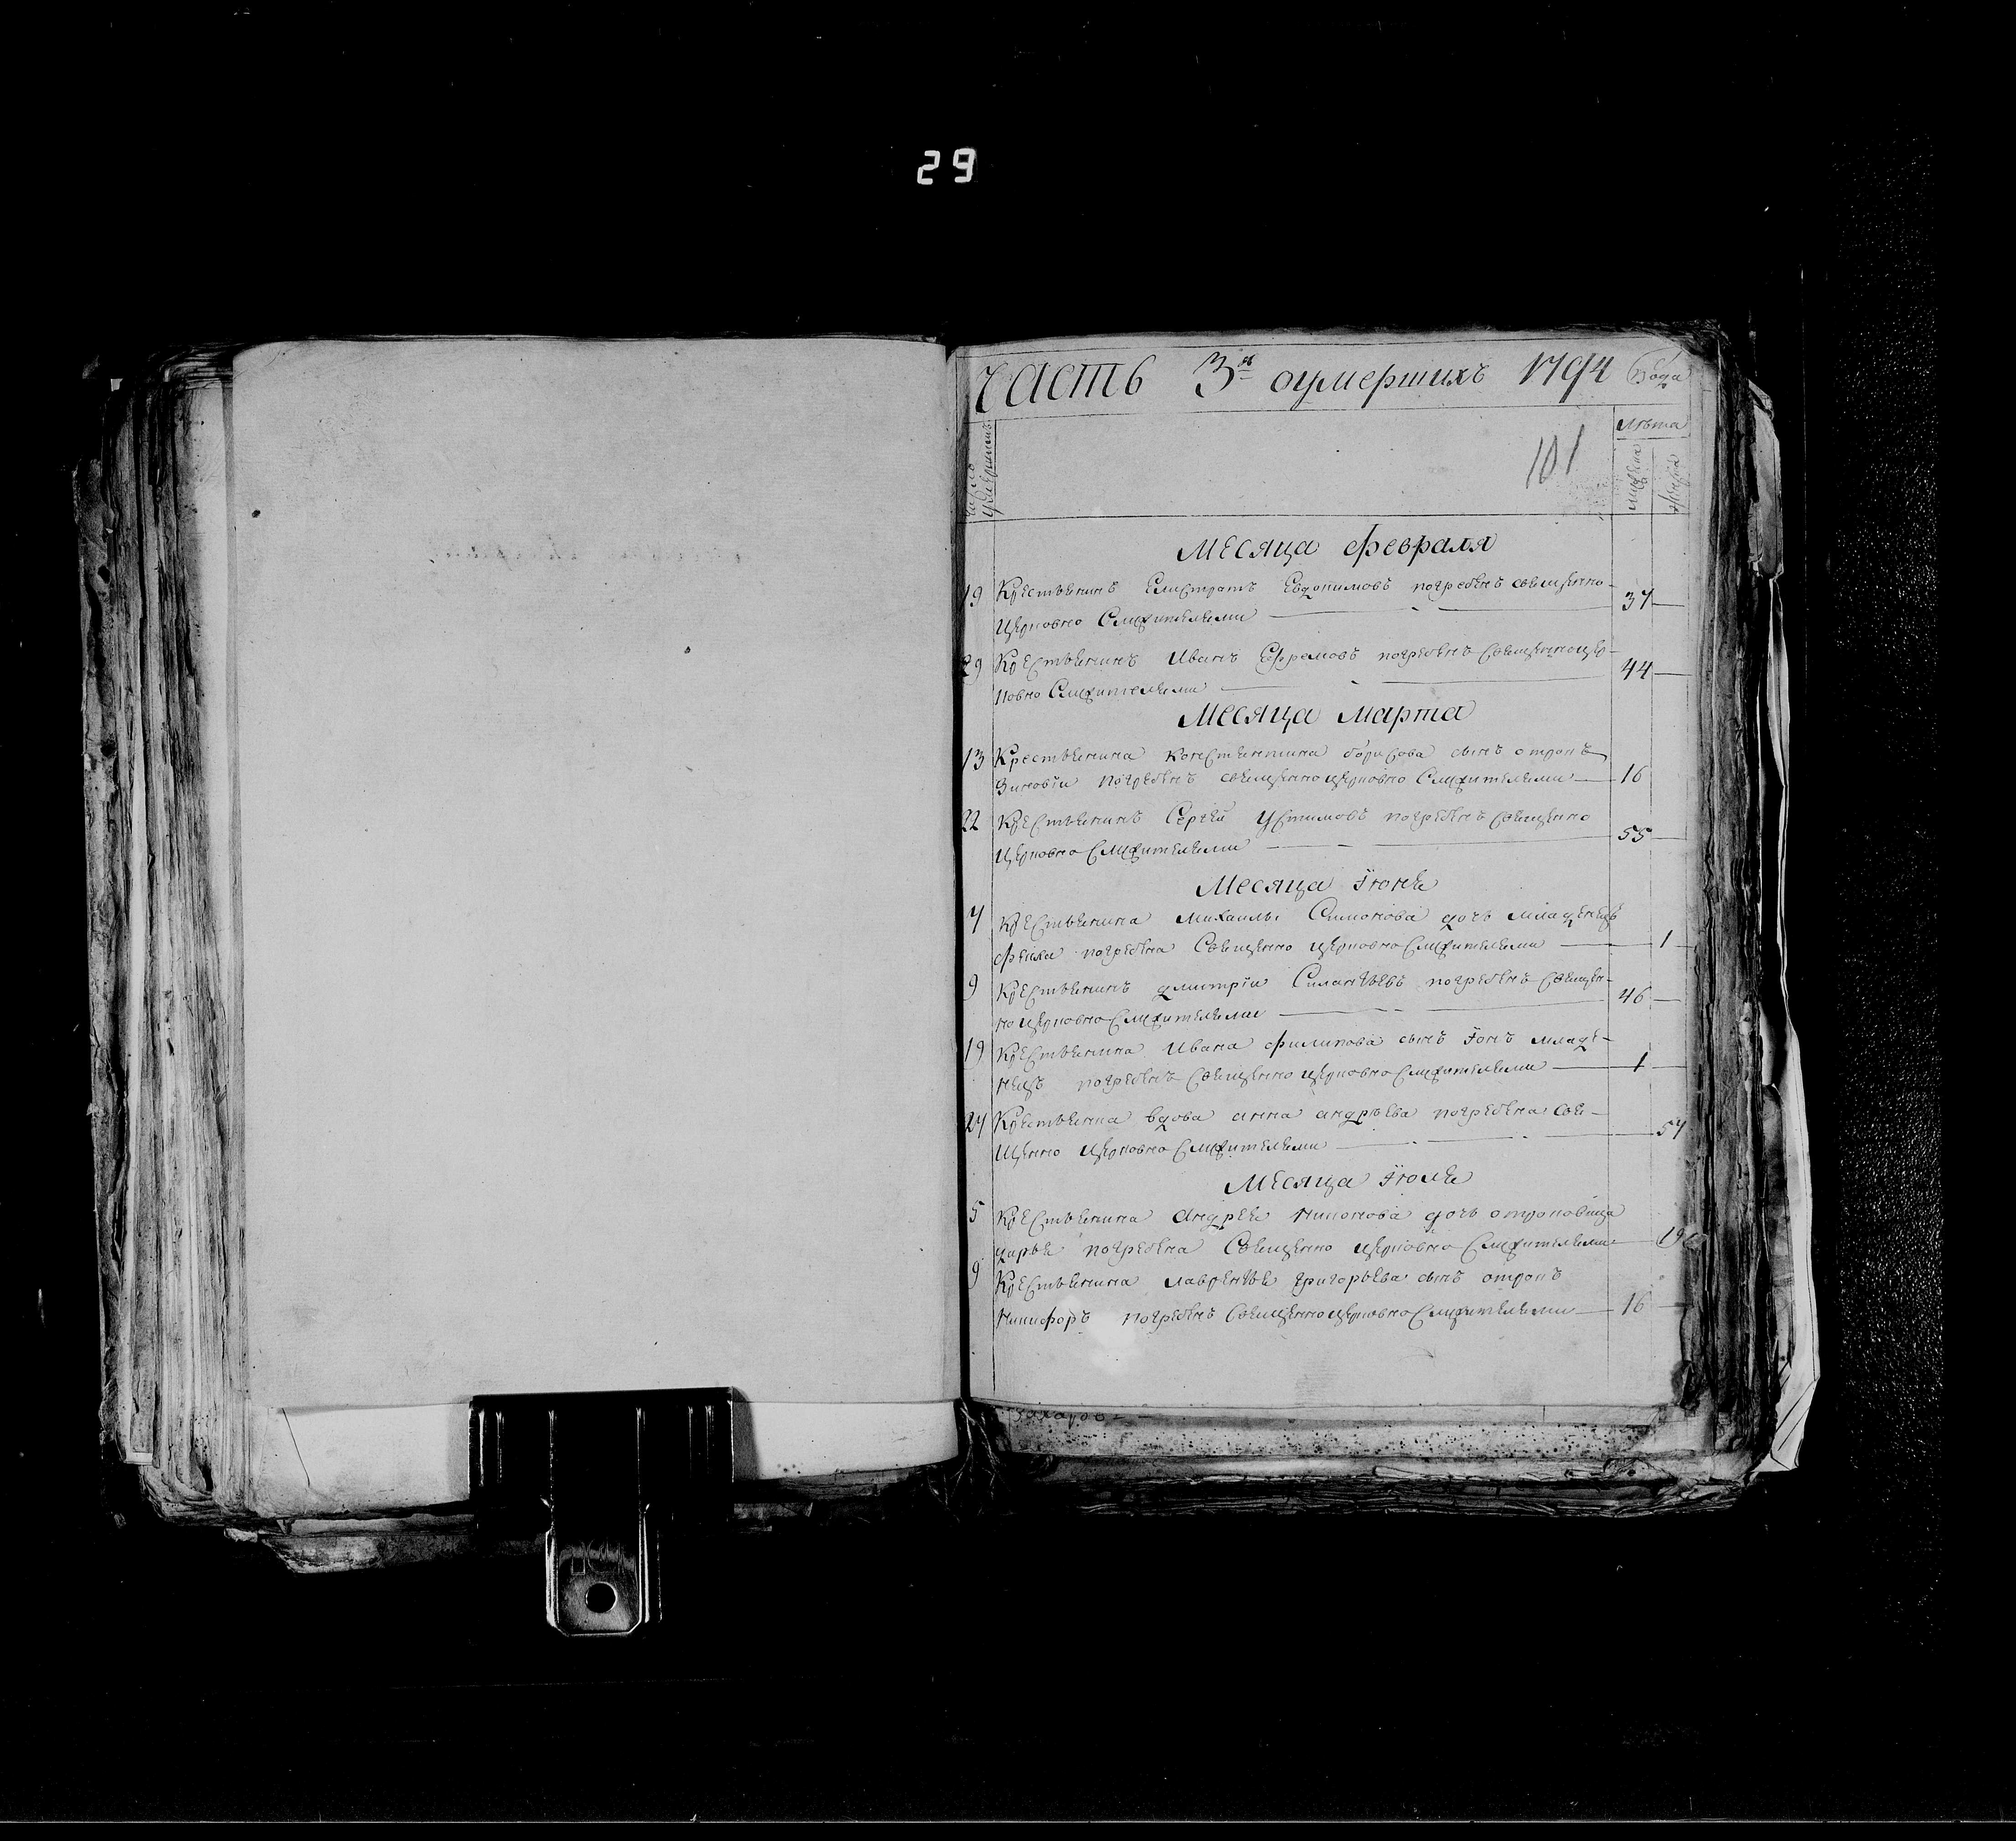 29
Часть 3я оумершихъ 1794 года
Число умершихъ
лѣта
мужска
женска
101
Месяца февраля
19 Крестьянинъ Елистратъ Евдокимовъ погребенъ священно-
церковно служителями 37
29 Крестьянинъ Иванъ Ефремовъ погребенъ священноцер-
ковно служителями 44
Месяца марта
13 Крестьянина Констянтина борисова сынъ отрокъ
Зиновiи погребенъ священно церковно служителями 16
22 Крестьянинъ Сергей Устимовъ погребенъ священно
церковно служителями 55
Месяца Iюня
7 Крестьянина михаилы Симонова дочь младенецъ
фекла погребена священно церковно служителями 1
9 Крестьянинъ дмитрiи Силантьевъ погребенъ священ-
но церковно служителями 46
19 Крестьянина Ивана филипова сынъ Iонъ младе-
нецъ погребенъ священно церковно служителями 1
27 Крестьянка вдова анна андрѣева погребена свя-
щенно церковно служителями 57
Месяца Iюля
5 Крестьянина андрея никонова дочь отроковица
дарья погребена священно церковно служителями 19
9 Крестьянина лаврентья григорьева сынъ отрокъ
никифоръ погребенъ священно церковно служителями 16
захаров